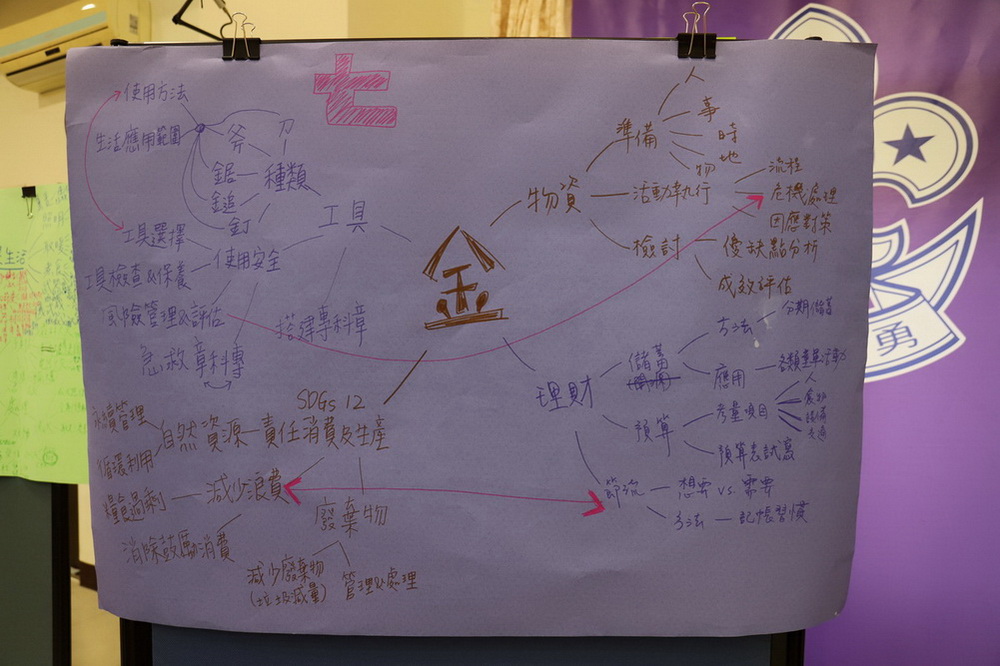 七
金
工具
種類
刀
斧
鋸
鎚
釘
使用方法
生活應用範圍
使用安全
工具選擇
工具檢查&保養
風險管理&評估
搭建專科章
急救章科專
物資
準備
人
事
時
地
物
活動執行
流程
危機處理
因應對策
檢討
優缺點分析
成效評估
理財
儲蓄
方法
分期儲蓄
應用
預算
考量項目
人
交通
預算表試寫
節流
想要 vs. 需要
方法
記帳習慣
SDGs 12
責任消費及生產
自然資源
永續管理
循環利用
減少浪費
糧食過剩
消除鼓勵消費
廢棄物
減少廢棄物
(垃圾減量)
管理&處理
勇
生活